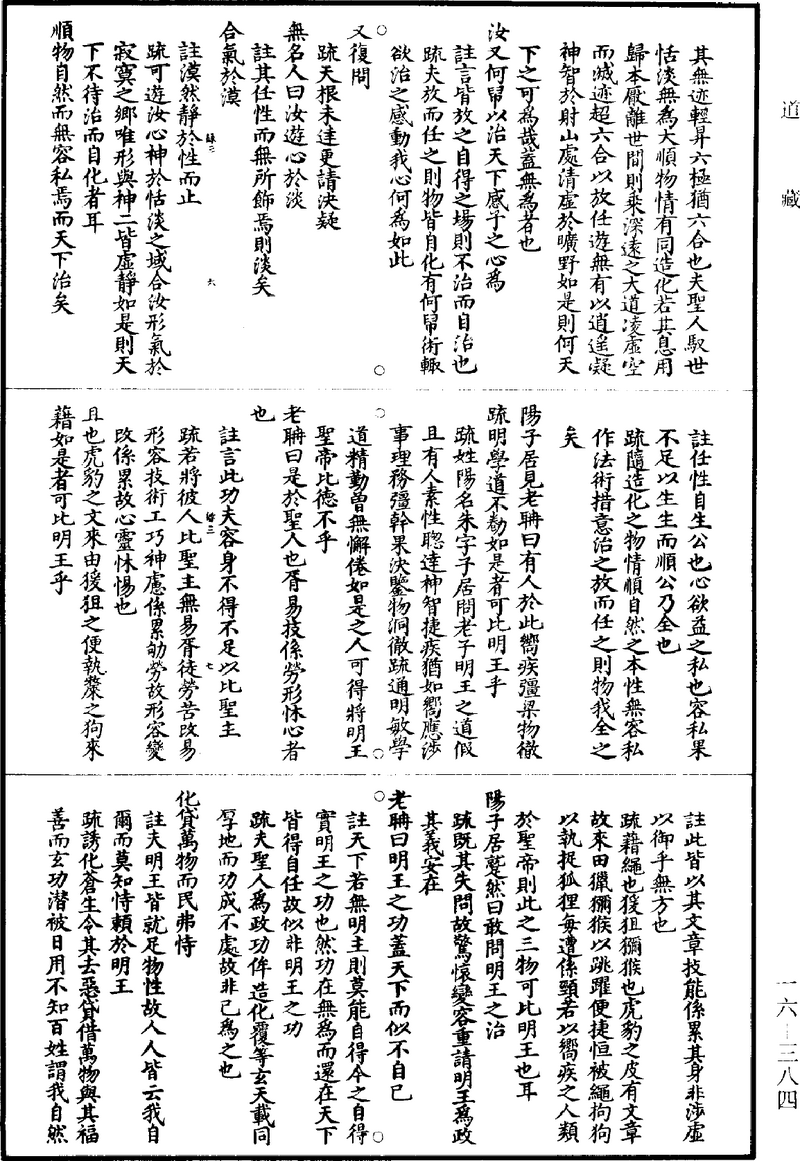 道藏
其無迹輕昇六極猶六合也夫聖人馭世
恬淡無為大順物情有同造化若其息用
歸本厭離世間則乗深遠之大道凌虛空
而滅迹超六合以放任遊無有以逍遥凝
神智於射山處清虛於曠野如是則何天
下之可為哉蓋無為者也
汝又何帠以治天下感予之心為
註言皆放之自得之場則不治而自治也
疏夫放而任之則物皆自化有何帠術輙
欲治之感動我心何為如此
又復問
疏天根未達更請決疑
無名人曰汝遊心於淡
註其任性而無所飾焉則淡矣
合氣於漠
註漠然靜於性而止
疏可遊汝心神於恬淡之域合汝形氣於
寂寞之鄉唯形與神二皆虛靜如是則天
下不待治而自化者耳
順物自然而無容私焉而天下治矣
六
註任性自生公也心欲益之私也容私果
不足以生生而順公乃全也
疏隨造化之物情順自然之本性無容私
作法術措意治之放而任之則物我全之
矣
陽子居見老聃曰有人於此嚮疾彊梁物徹
疏明學道不勌如是者可比明王乎
疏姓陽名朱字子居問老子明王之道假
且有人素性聰達神智捷疾猶如嚮應涉
事理務彊幹果決鑒物洞徹疏通明敏學
道精勤曽無懈倦如是之人可得將明王
聖帝比德不乎
老聃曰是於聖人也胥易技係勞形怵心者
也
註言此功夫容身不得不足以比聖主
疏若將彼人比聖主無易胥徒勞苦改易
形容技術工巧神慮係累劬勞故形容變
改係累故心靈怵惕也
且也虎豹之文來田猨狙之便執斄之狗來
藉如是者可比明王乎
七
註此皆以其文章技能係累其身非涉虛
以御乎無方也
疏藉繩也猨狙獼猴也虎豹之皮有文章
故來田獵獼猴以跳躍便捷恒被繩拘狗
以執捉狐狸每遭係頸若以嚮疾之人類
於聖帝則此之三物可比明王也耳
陽子居蹵然曰敢問明王之治
疏既其失問故驚懷變容重請明王為政
其義安在
老聃曰明王之功蓋天下而似不自己
註天下若無明主則莫能自得今之自得
實明王之功也然功在無為而還在天下
皆得自任故似非明王之功
疏夫聖人為政功侔造化覆等玄天載同
厚地而功成不處故非己為之也
化貸萬物而民弗恃
註夫明王皆就足物性故人人皆云我自
爾而莫知恃賴於明王
疏誘化蒼生令其去惡貸借萬物與其福
善而玄功潜被日用不知百姓謂我自然
一六—三八四